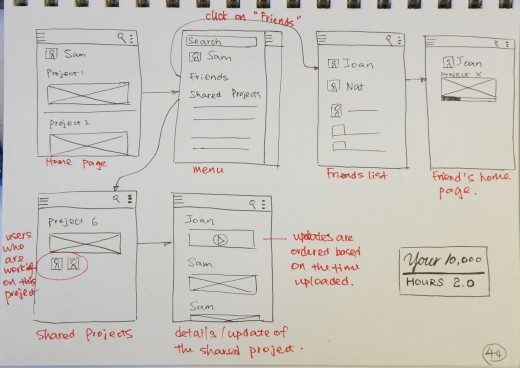 click on "Friends"
Sam
Project 1
Project 2
Home page
Search
Sam
Friends
Shared Projects
menu
Joan
Nat
Friends list
Joan
Project X
Friend's home
page.
users
who
are
working
on this
project
Project 6
Shared Projects
Joan
Sam
Sam
details/update of
the shared project.
updates are
ordered based
on the time
uploaded.
Your 10,000
HOURS 2.0
44